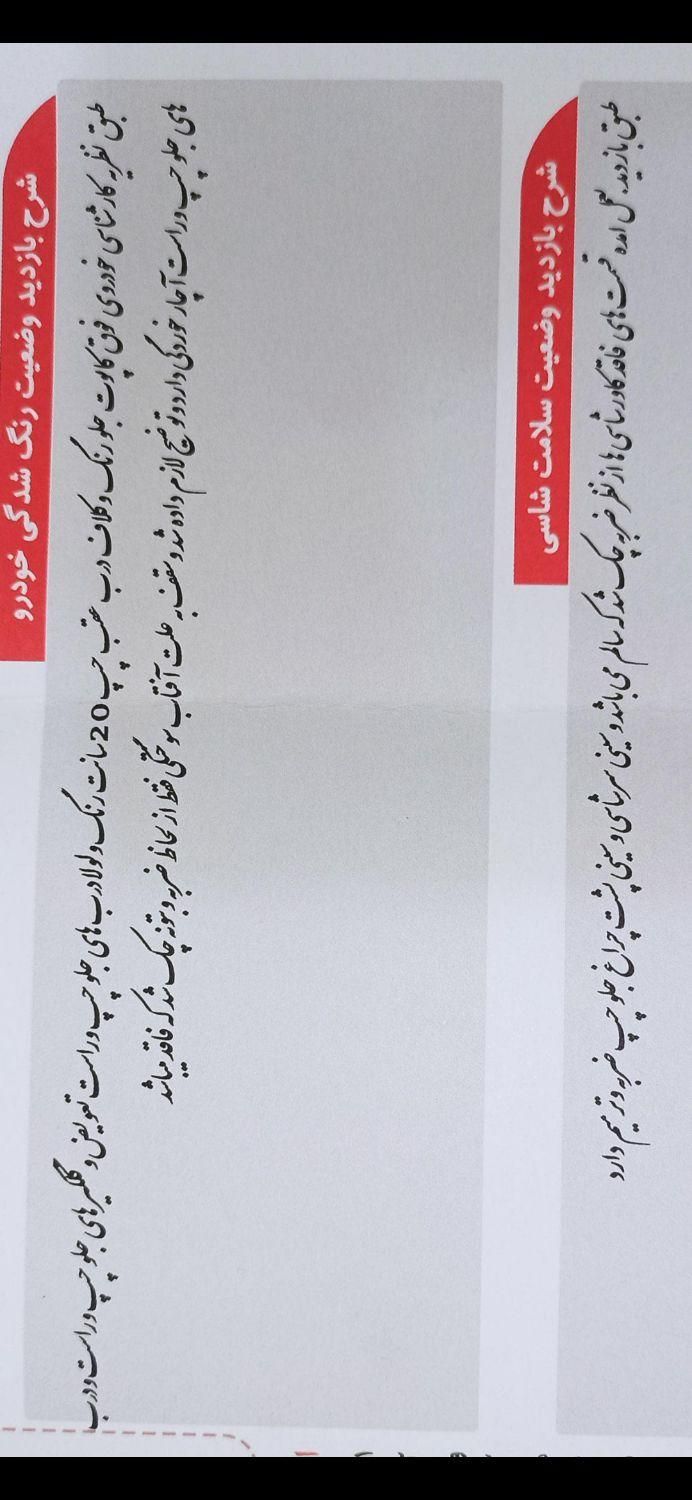 شرح بازدید وضعیت رنگ شدگی خودرو
طبق نظریه کارشناسی خودروی فوق کاپوت جلو رنگ و کلاف درب عقب چپ 20 سانت رنگ و لولا درب های جلو چپ و راست تعویض و گلگیرهای جلو چپ و راست و درب
های جلو چپ و راست آچار خوردگی دارد و توضیح لازم داده شد و سقف به علت آفتاب سوختگی فقط از لحاظ ضربه و بتونه چک شد که فاقد میباشد
شرح بازدید وضعیت سلامت شاسی
طبق بازدید بعمل امده قسمت های فاقد کاور شاسی ها از نظر ضربه چک شد که سالم می باشد و سینی سرشاسی و سینی پشت چراغ جلو چپ ضربه و ترمیم دارد